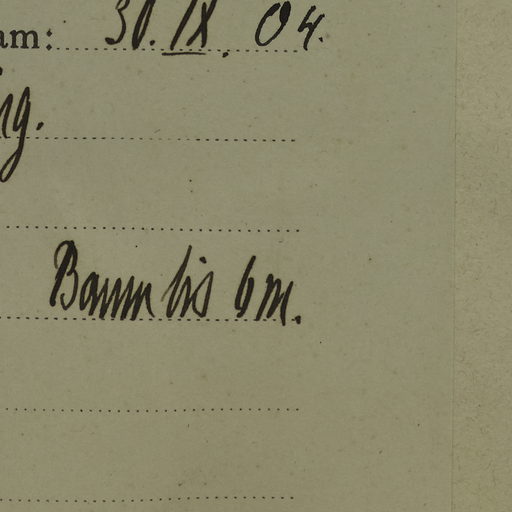 am: 30. IX. 04.
ng.
Baum bis 6 m.